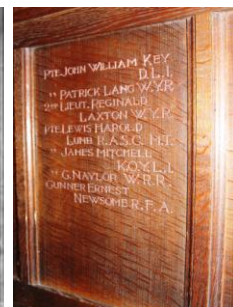 PTE JOHN WILLIAM KEY
D.L.I.
" PATRICK LANG W.Y.R.
2ND LIEUT. REGINALD
LAXTON W.Y.R.
PTE LEWIS HAROLD
LUNB R.A.S.C. M.T.
" JAMES MITCHELL
K.O.Y.L.I.
" G. NAYLOR W.R.R.
GUNNER ERNEST
NEWSOME R.F.A.